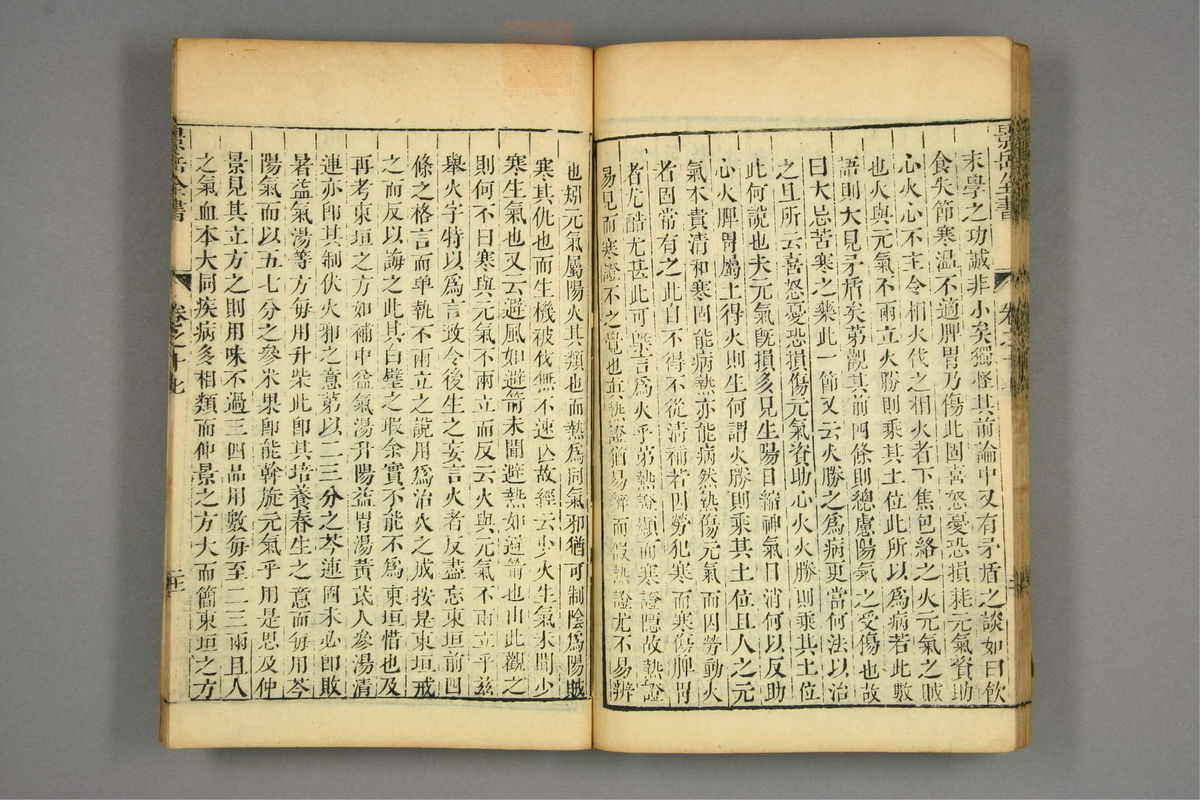 末學之功誠非小矣獨怪其前論中又有矛盾之談如曰飲
食失節寒溫不適脾胃乃傷此固喜怒憂恐損耗元氣資助
心火心不主令相火代之相火者下焦包絡之火元氣之賊
也火與元氣不兩立火勝則乘其土位此所以為病若此數
語則大見矛盾矣第觀其前四條則總慮陽氣之受傷也故
曰大忌苦寒之藥此一節又云火勝之為病更當何法以治
之且所云喜怒憂恐損傷元氣資助心火火勝則乘其土位
此何說也夫元氣既損多見生陽日縮神氣日消何以反助
心火脾胃屬土得火則生何謂火勝則乘其土位且人之元
氣本貴清和寒固能病熱亦能病然熱傷元氣而因勞動火
者固常有之此自不得不從清補若因勞犯寒而寒傷脾胃
者尤酷尤甚此可槩言為火乎第熱證顯而寒證隱故熱證
易見而寒證不之覺也真熱證猶易辨而假熱證尤不易辨
也矧元氣屬陽火其類也而熱為同氣邪猶可制陰為陽賊
寒其仇也而生機被伐無不速亾故經云少火生氣未聞少
寒生氣也又云避風如避箭未聞避熱如避箭也由此觀之
則何不曰寒與元氣不兩立而反云火與元氣不兩立乎茲
舉火字特以為言致令後生之妄言火者反盡忘東垣前四
條之格言而單執不兩立之說用為治火之成按是東垣戒
之而反以誨之此其白璧之瑕余實不能不為東垣惜也及
再考東垣之方如補中益氣湯升陽益胃湯黃芪人參湯清
連亦卽其制伏火邪之意第以二三分之芩連固未必卽敗
暑益氣湯等方每用升柴此卽其培養春生之意而每用芩
陽氣而以五七分之參朮果卽能斡旋元氣乎用是思及仲
景見其立方之則用味不過三四品用數每至二三兩且人
之氣血本大同疾病多相類而仲景之方大而簡東垣之方
景岳全書
卷之十七
景岳全書
卷之十七